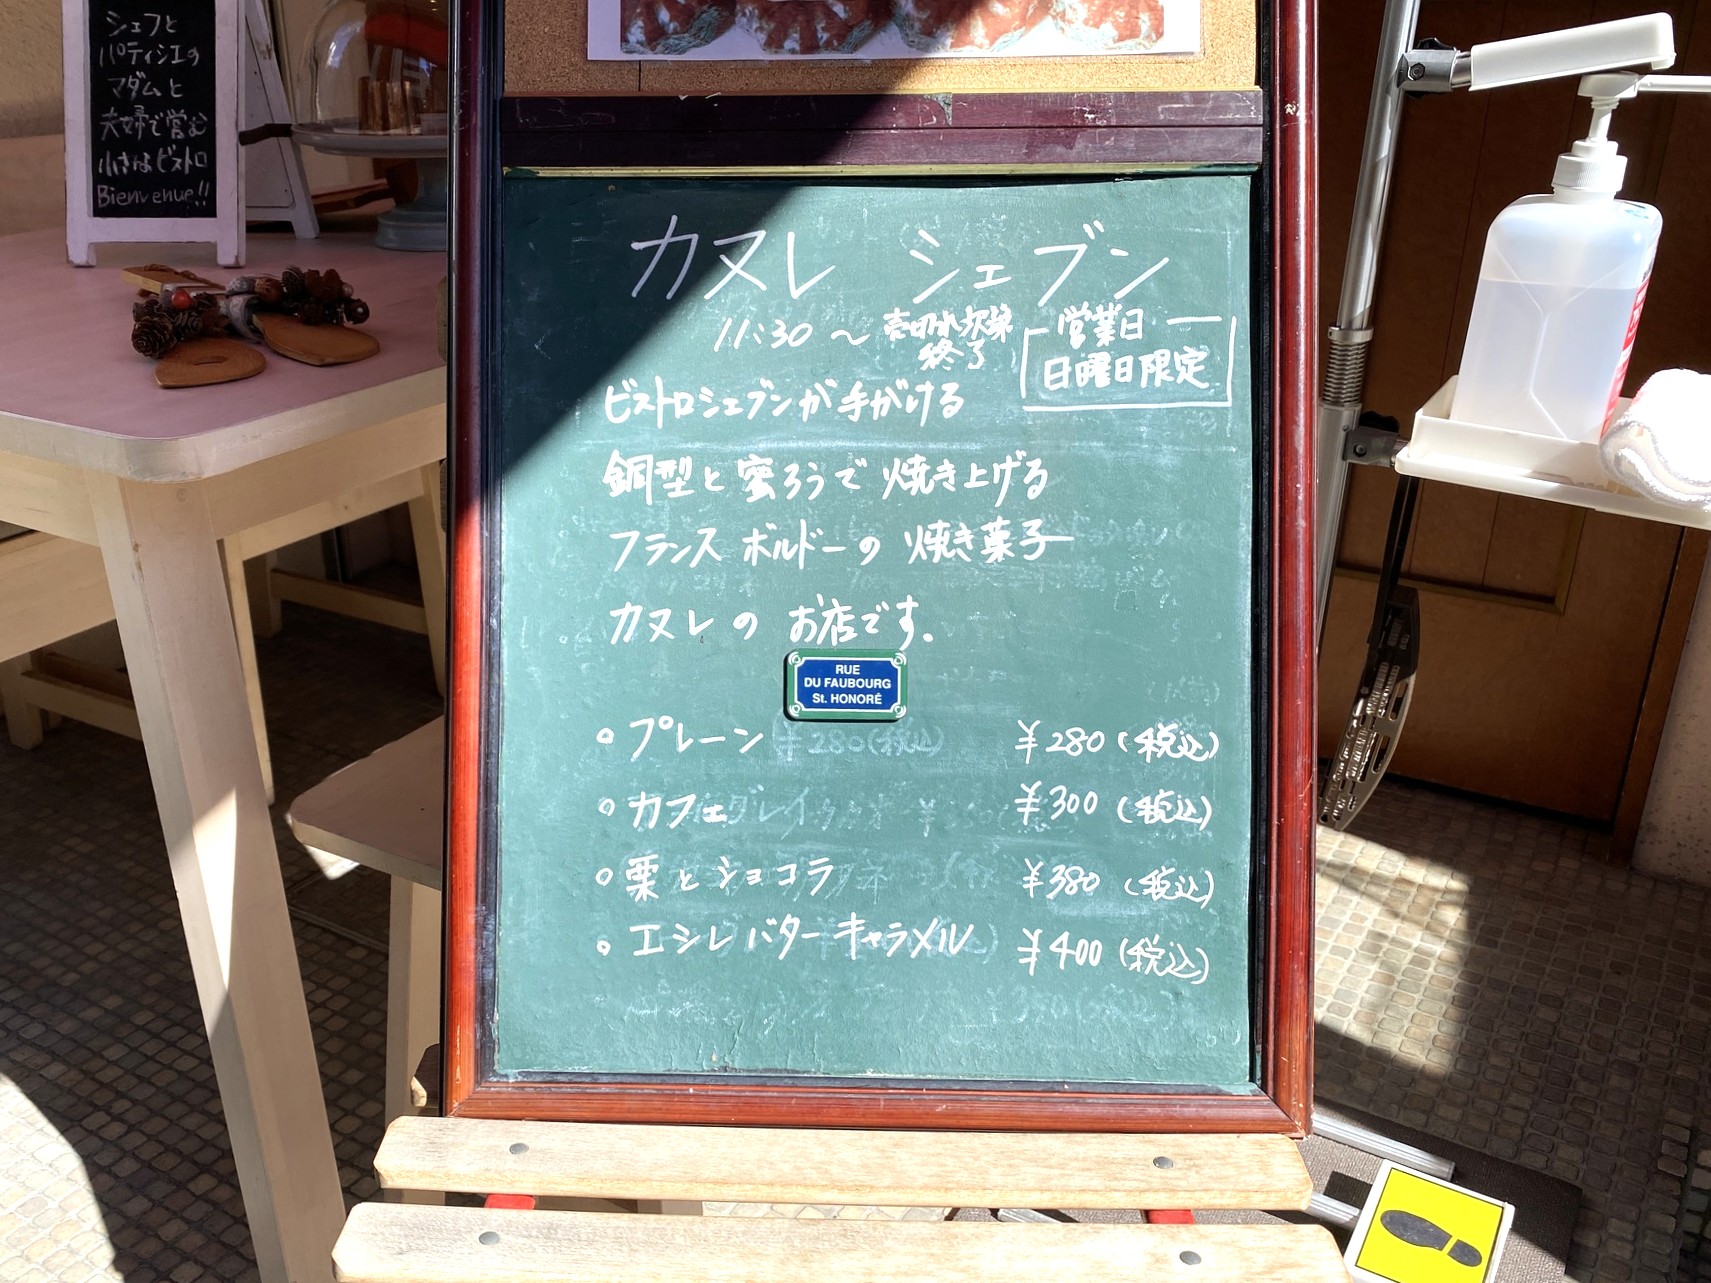 シェフと
パティシエの
マダムと
夫婦で営む
小さなビストロ
Bienvenue!!
カヌレ シェブン
11:30 ～ 売切れ次第
終了
営業日
日曜日限定
ビストロシェブンが手がける
銅型と蜜ろうで焼き上げる
フランス ボルドーの 焼き菓子
カヌレの お店です.
RUE
DU FAUBOURG
St. HONORÉ
○ プレーン ¥280(税込)
○ カフェ ¥300 (税込)
○ 栗とショコラ ¥380 (税込)
○ エシレバターキャラメル ¥400 (税込)